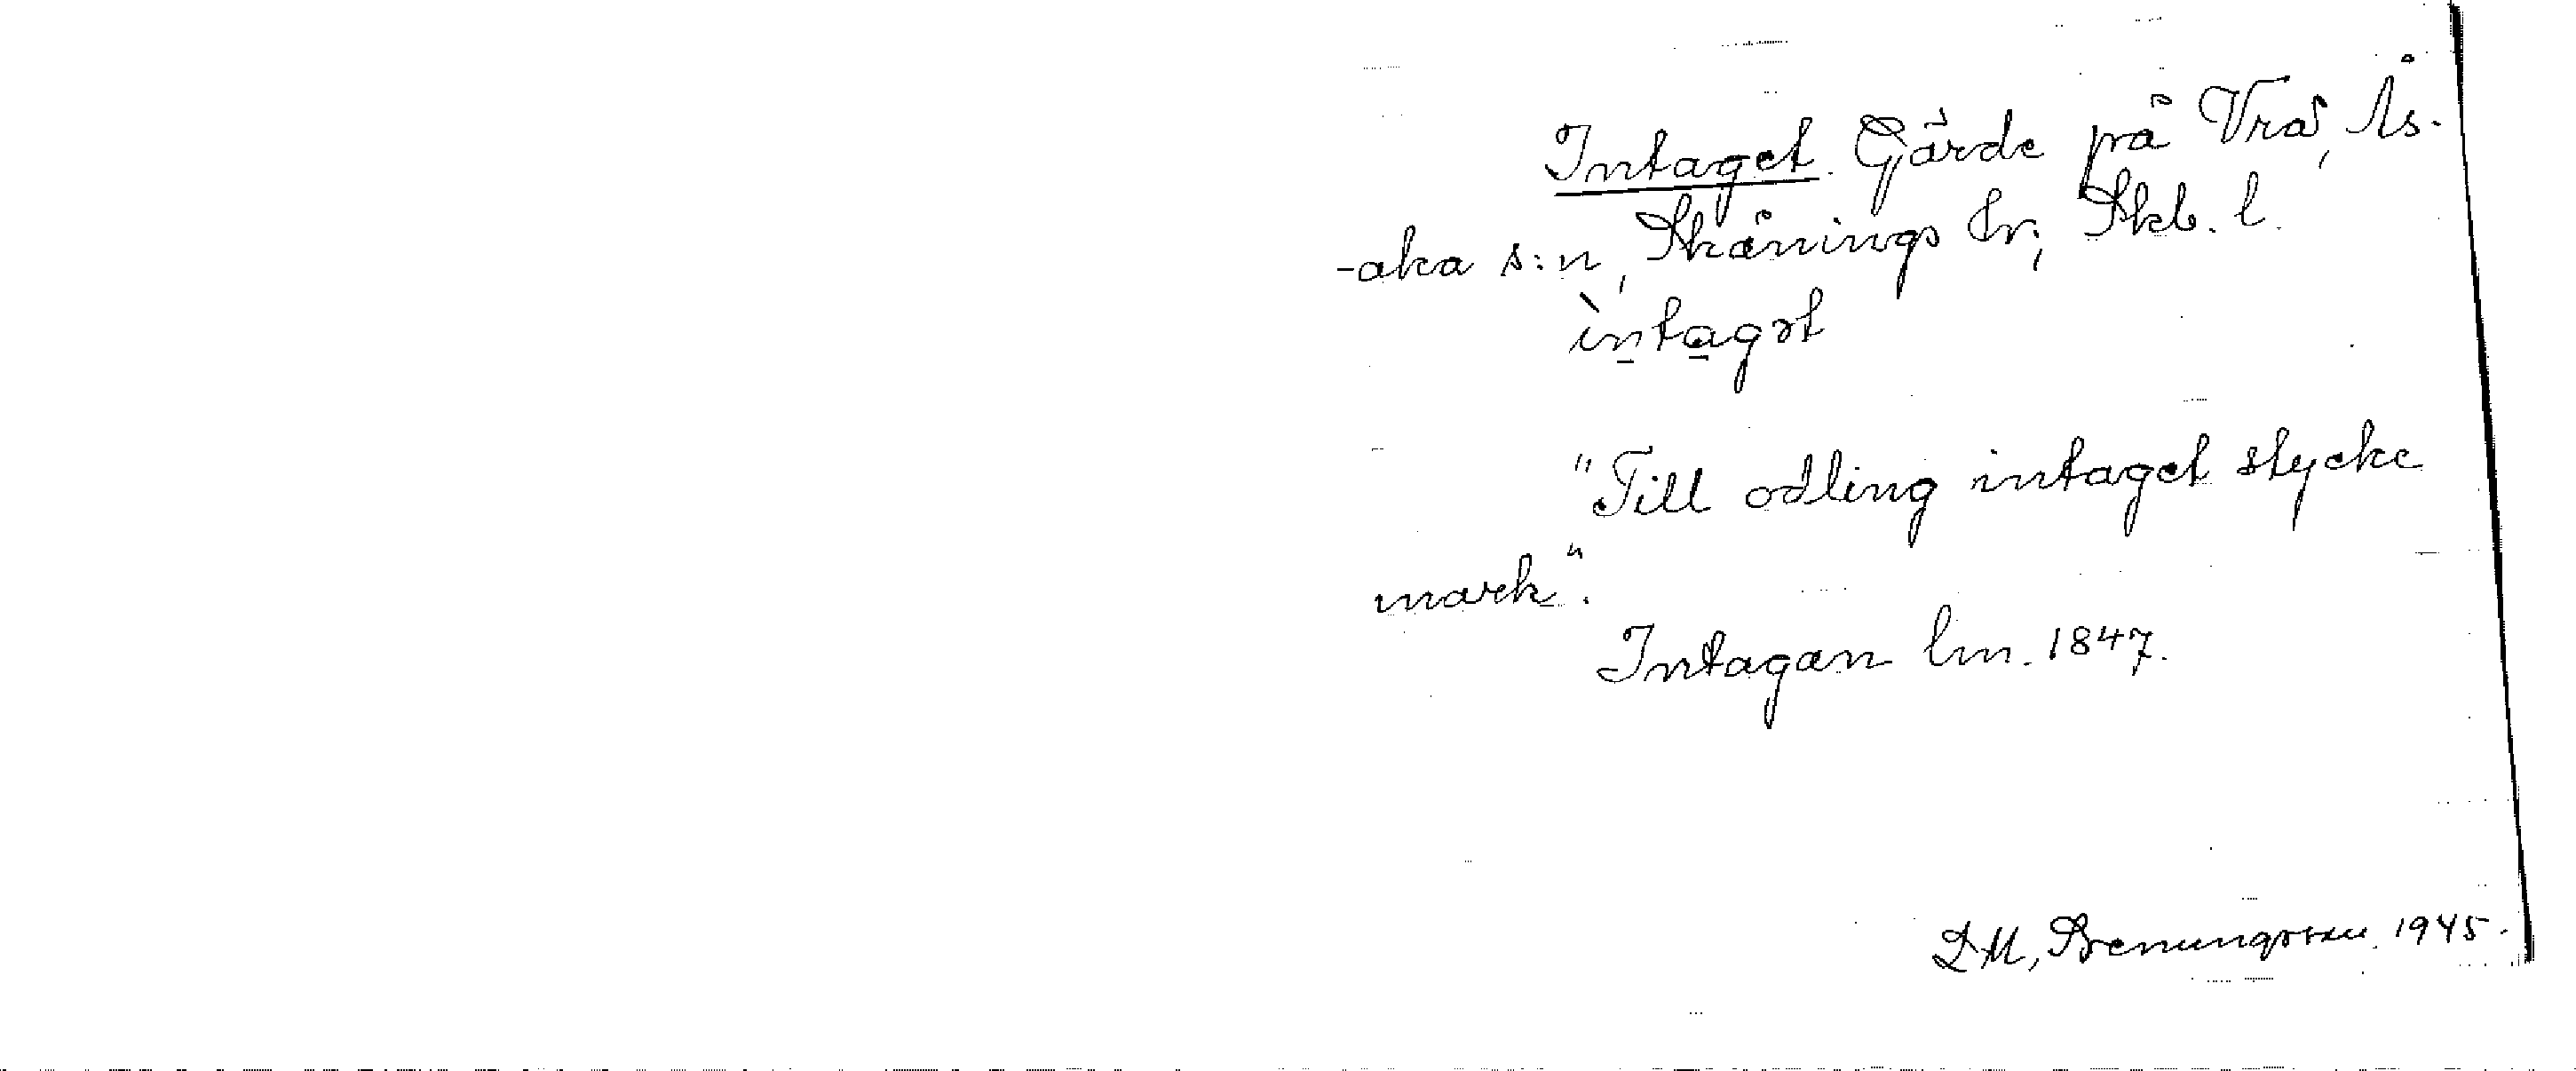 Intaget. Gärde på Vrå, Ås-
-aka s:n, Skånings hr, Skb. l.
ìntagət
"Till odling intaget stycke
mark".
Intagan lm. 1847.
1945.